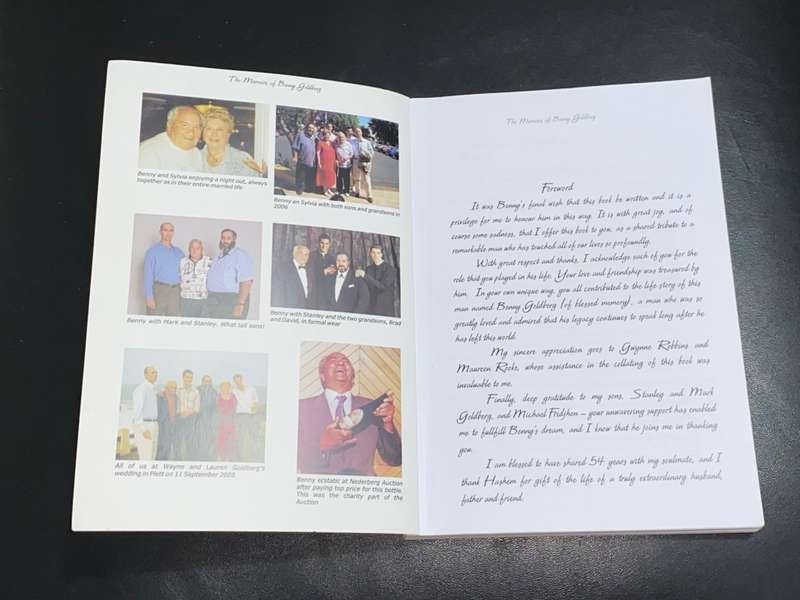 The Memoirs of Benny Goldberg
Benny and Sylvia enjoying a night out, always
together as in their entire married life
Benny an Sylvia with both sons and grandsons in
2006
Benny with Mark and Stanley. What tall sons!
Benny with Stanley and the two grandsons, Brad
and David, in formal wear
All of us at Wayne and Lauren Goldberg's
wedding in Plett on 11 September 2002.
Benny ecstatic at Nederberg Auction
after paying top price for this bottle.
This was the charity part of the
Auction
The Memoirs of Benny Goldberg
Foreword
It was Benny's final wish that this book be written and it is a
privilege for me to honour him in this way. It is with great joy, and of
course some sadness, that I offer this book to you, as a shared tribute to a
remarkable man who has touched all of our lives so profoundly.
With great respect and thanks, I acknowledge each of you for the
role that you played in his life. Your love and friendship was treasured by
him. In your own unique way, you all contributed to the life story of this
man named Benny Goldberg (of blessed memory), a man who was so
greatly loved and admired that his legacy continues to speak long after he
has left this world.
My sincere appreciation goes to Gwynne Robbins and
Maureen Rocke, whose assistance in the collating of this book was
invaluable to me.
Finally, deep gratitude to my sons, Stanley and Mark
Goldberg, and Michael Fridjhon – your unwavering support has enabled
me to fullfill Benny's dream, and I know that he joins me in thanking
you.
I am blessed to have shared 54 years with my soulmate, and I
thank Hashem for gift of the life of a truly extraordinary husband,
father and friend.